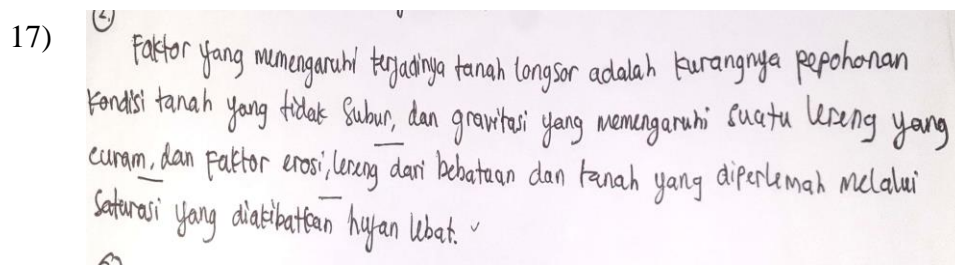 17)
2.
Faktor yang memengaruhi terjadinya tanah longsor adalah kurangnya pepohonan
kondisi tanah yang tidak subur, dan gravitasi yang memengaruhi suatu lereng yang
curam, dan faktor erosi, lereng dari bebatuan dan tanah yang diperlemah melalui
saturasi yang diakibatkan hujan lebat.